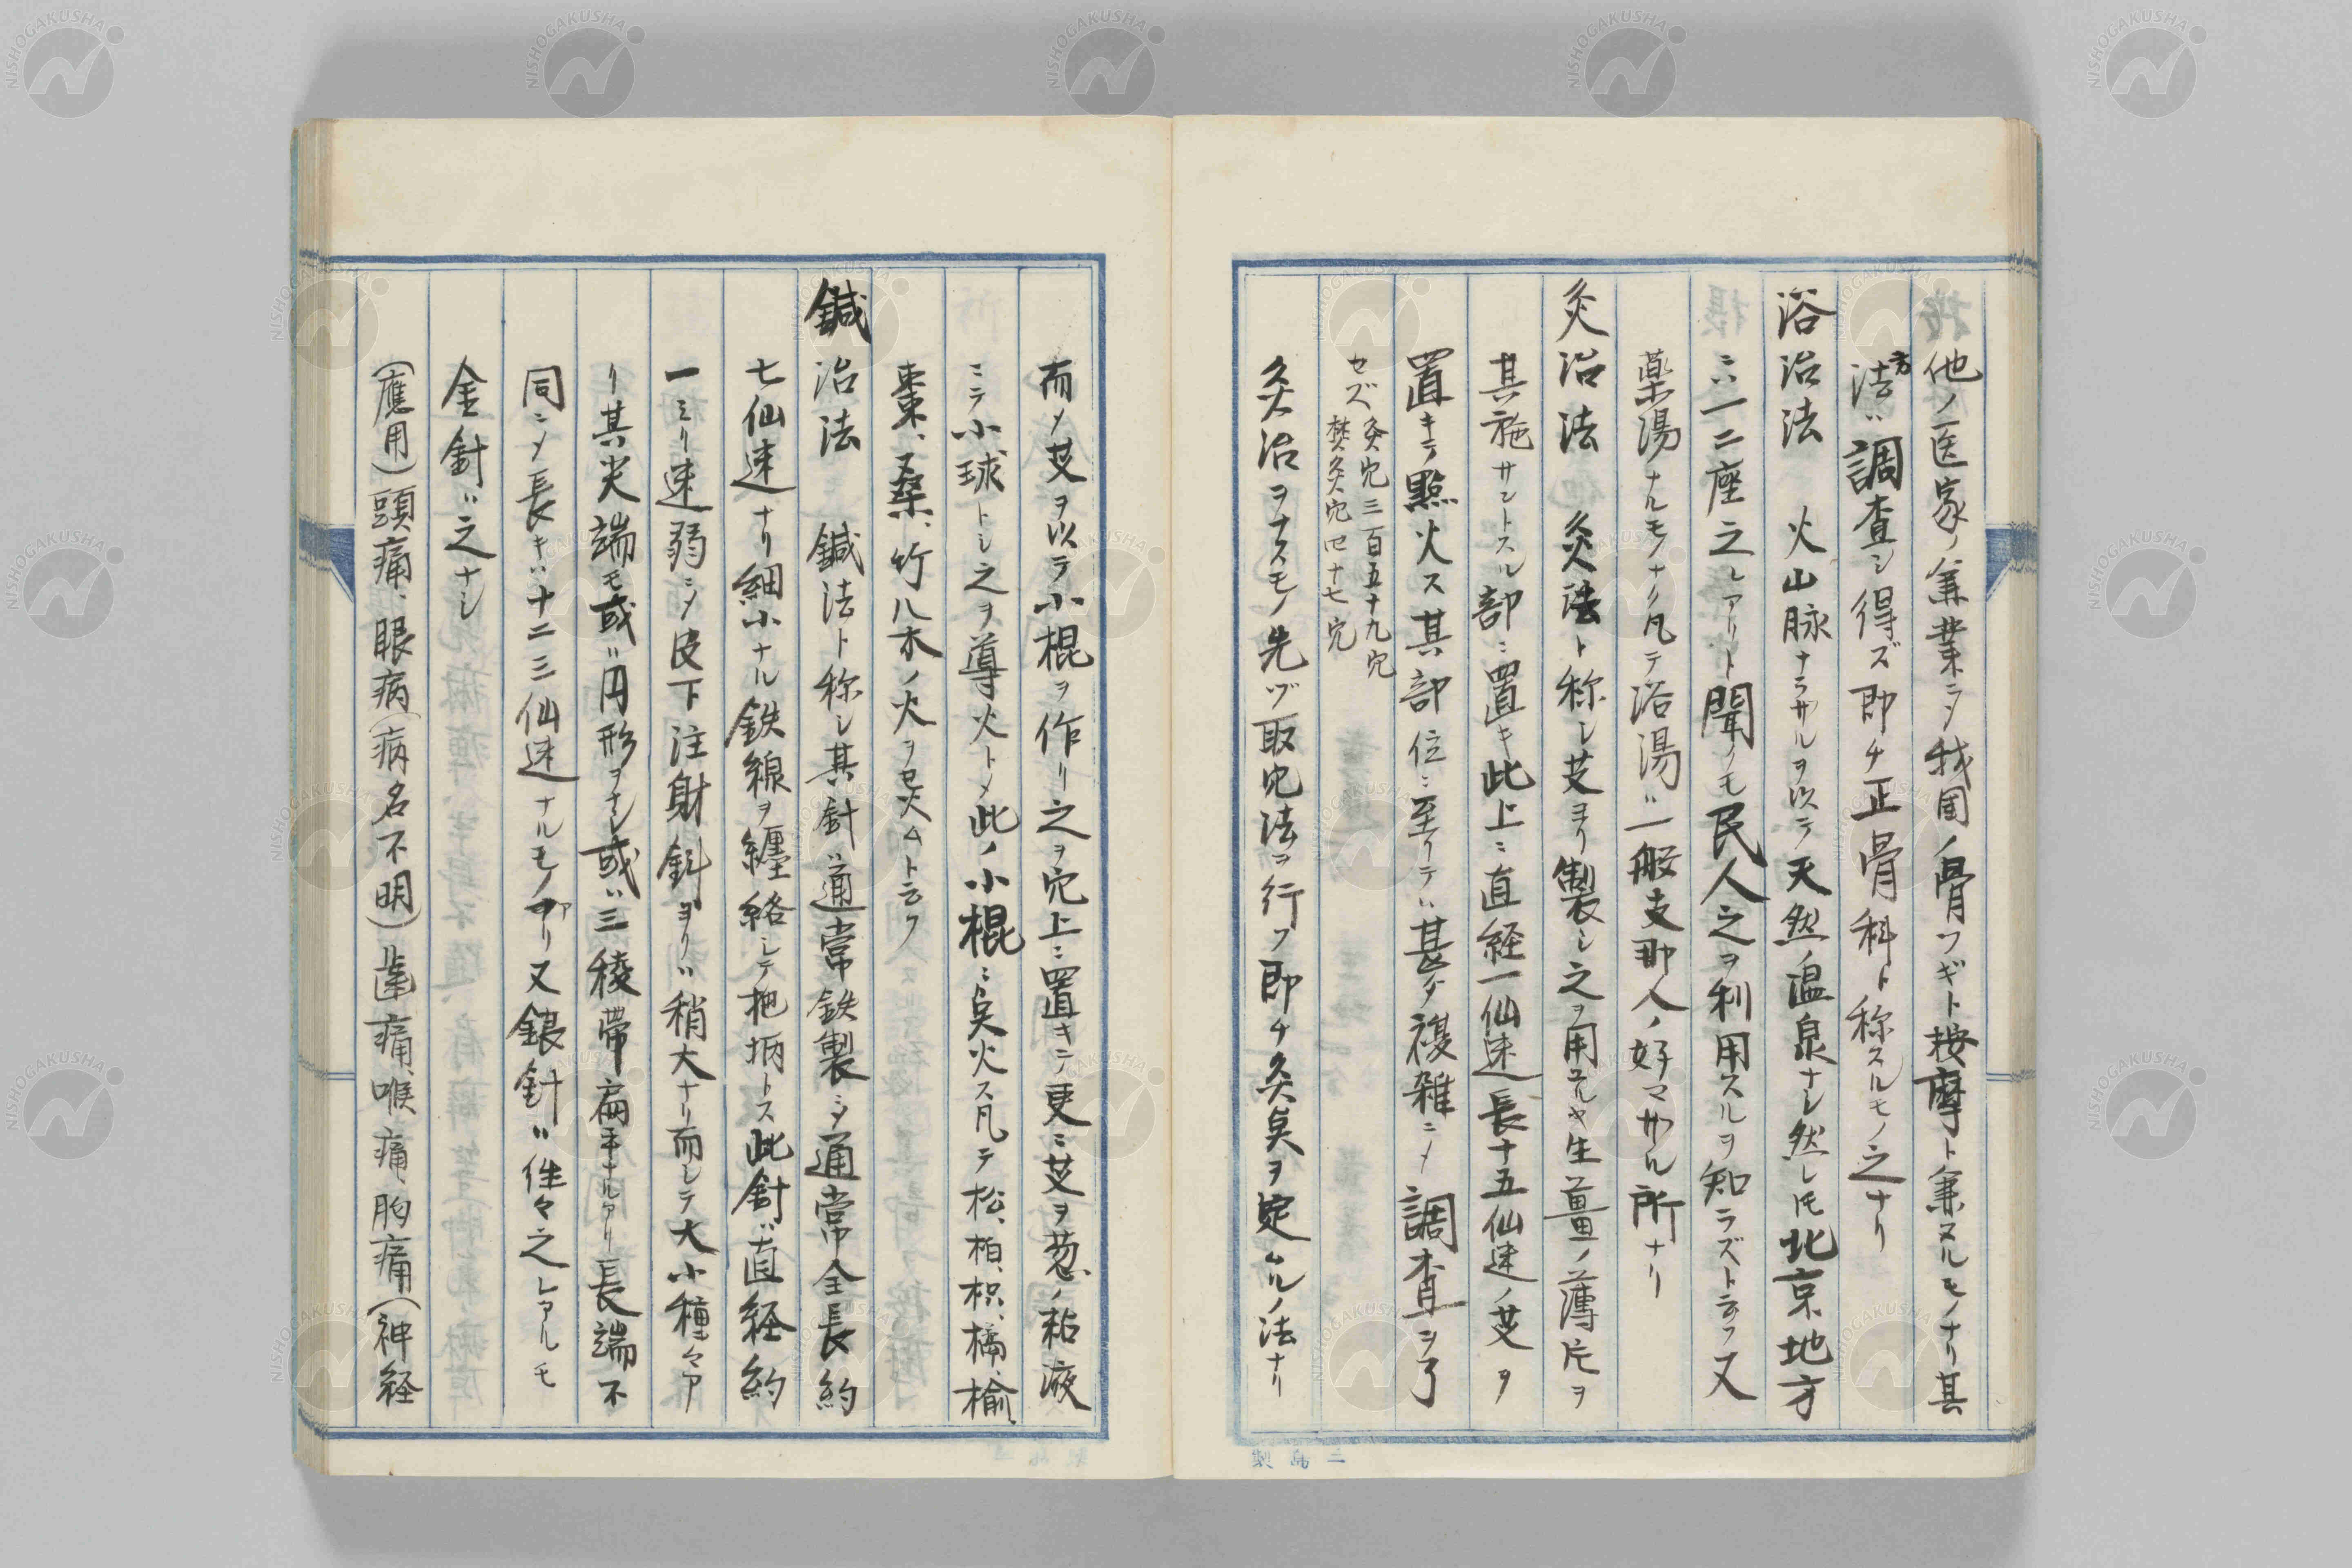 他ノ医家ノ兼業ニシテ我国ノ骨ツギト按摩ト兼ヌルモノナリ其
方法ハ調査シ得ズ即チ正骨科ト称スルモノ之ナリ
浴治法　火山脉ナラザルヲ以テ天然ノ温泉ナシ然レ𪜈北京地方
ニハ一二座之レアリト聞クモ民人之ヲ利用スルヲ知ラズト云フ又
薬湯ナルモノナク凡テ浴湯ハ一般支那人ノ好マザル所ナリ
灸治法　灸法ト称シ艾ヨリ製シ之ヲ用ユルヤ生薑ノ薄片ヲ
其施サントスル部ニ置キ此上ニ直経一仙迷長十五仙迷ノ艾ヲ
置キテ點火ス其部位ニ至リテハ甚ダ複雑ニメ調査ヲ了
セズ　灸穴三百五十九穴
禁灸穴四十七穴
灸治ヲナスモノ先ヅ取穴法ヲ行フ即チ灸㸃ヲ定ムルノ法ナリ
而メ艾ヲ以テ小棍ヲ作リ之ヲ穴上ニ置キテ更ニ艾ヲ葱ノ粘液
ニテ小球トシ之ヲ導火トメ此ノ小棍ニ㸃火ス凡テ松、柏、枳、橘、楡、
棗、桑、竹八木ノ火ヲ忌ムト云フ
鍼治法　鍼法ト称シ其針ハ通常鉄製ニメ通常全長約
七仙迷ナリ細小ナル鉄線ヲ纏絡シテ把柄トス此針ハ直経約
一ミリ迷弱ニメ皮下注射針ヨリハ稍大ナリ而シテ大小種々ア
リ其尖端モ或ハ円形ヲナシ或ハ三稜帯扁平ナルアリ長端不
同ニメ長キハ十二三仙迷ナルモノアリ又銀針ハ往々之レアルモ
金針ハ之ナシ
（應用）頭痛、眼病（病名不明）歯痛、喉痛、胸痛（神経
三島製